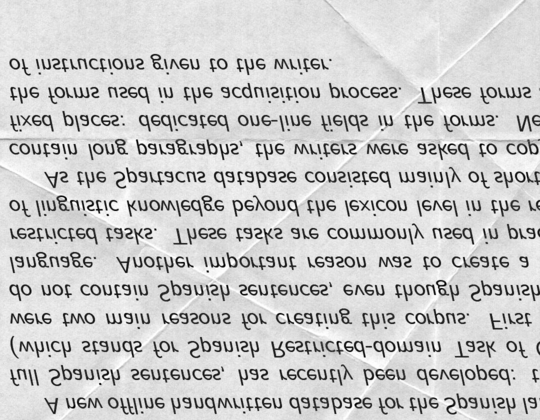 A new offline handwritten database for the Spanish la
full Spanish sentences, has recently been developed: t
(which stands for Spanish Restricted-domain Task of C
were two main reasons for creating this corpus. First
do not contain Spanish sentences, even though Spanish
language. Another important reason was to create a
restricted tasks. These tasks are commonly used in prac
of linguistic knowledge beyond the lexicon level in the re
As the Spartacus database consisted mainly of short
contain long paragraphs, the writers were asked to cop
fixed places: dedicated one-line fields in the forms. Ne
the forms used in the acquisition process. These forms
of instructions given to the writer.